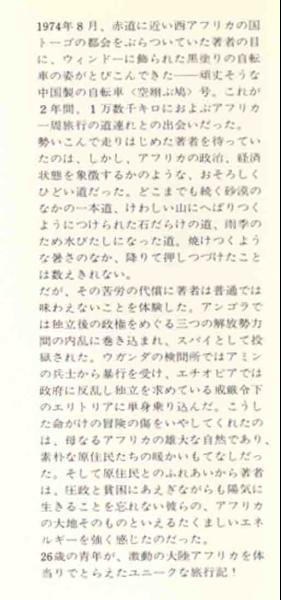 1974年8月、赤道に近い西アフリカの国
トーゴの都会をぶらついていた著者の目
に、ウィンドーに飾られた黒塗りの自転
車の姿がとびこんできた——頑丈そうな
中国製の自転車〈空翔ぶ鳩〉号。これが
2年間、1万数千キロにおよぶアフリカ
一周旅行の道連れとの出会いだった。
勢いこんで走りはじめた著者を待ってい
たのは、しかし、アフリカの政治、経済
状態を象徴するかのような、おそろしく
ひどい道だった。どこまでも続く砂漠の
なかの一本道、けわしい山にへばりつく
ようにつけられた石だらけの道、雨季の
ため水びたしになった道。焼けつくよう
な暑さのなか、降りて押しつづけたこと
は数えきれない。
だが、その苦労の代償に著者は普通では
味わえないことを体験した。アンゴラで
は独立後の政権をめぐる三つの解放勢力
間の内乱に巻き込まれ、スパイとして投
獄された。ウガンダの検問所ではアミン
の兵士から暴行を受け、エチオピアでは
政府に反乱し独立を求めている戒厳令下
のエリトリアに単身乗り込んだ。こうし
た命がけの冒険の傷をいやしてくれたの
は、母なるアフリカの雄大な自然であり、
素朴な原住民たちの暖かいもてなしだっ
た。そして原住民とのふれあいから著者
は、圧政と貧困にあえぎながらも陽気に
生きることを忘れない彼らの、アフリカ
の大地そのものといえるたくましいエネ
ルギーを強く感じたのだった。
26歳の青年が、激動の大陸アフリカを体
当りでとらえたユニークな旅行記！